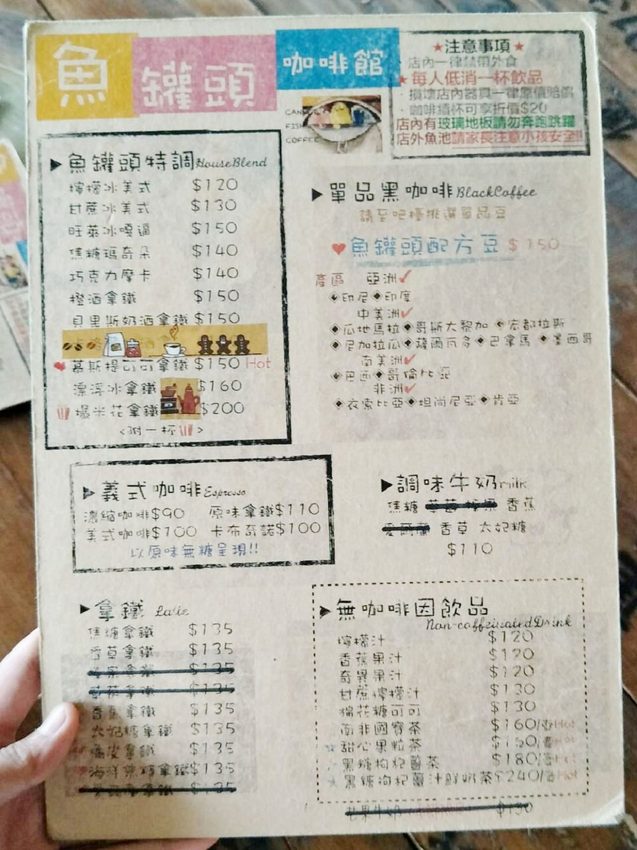 魚罐頭咖啡館
CAN
FIS
COFFEE
★注意事項★
店內一律禁帶外食
★每人低消一杯飲品
損壞店內器具一律原價賠償
咖啡續杯可享折價$20
店內有玻璃地板請勿奔跑跳躍
店外魚池請家長注意小孩安全!!
▶魚罐頭特調HouseBlend
檸檬冰美式 $120
甘蔗冰美式 $130
旺萊冰嘎逼 $150
焦糖瑪奇朵 $140
巧克力摩卡 $140
橙酒拿鐵 $150
貝果斯奶酒拿鐵 $150
慕斯提可可拿鐵 $150 Hot
漂浮冰拿鐵 $160
爆米花拿鐵 $200
<附一杯>
▶單品黑咖啡BlackCoffee
請至吧檯挑選單品豆
♥魚罐頭配方豆 $150
產區 亞洲✓
◆印尼◆印度
中美洲✓
◆瓜地馬拉◆哥斯大黎加◆宏都拉斯
◆尼加拉瓜◆薩爾瓦多◆巴拿馬◆墨西哥
南美洲✓
◆巴西◆哥倫比亞
非洲✓
◆衣索比亞◆坦尚尼亞◆肯亞
▶義式咖啡Espresso
濃縮咖啡$90 原味拿鐵$110
美式咖啡$100 卡布奇諾$100
以原味無糖呈現!!
▶調味牛奶milk
焦糖 香蕉
香草 太妃糖
$110
▶拿鐵 Latte
焦糖拿鐵 $135
香草拿鐵 $135
$135
$135
香蕉拿鐵 $135
太妃糖拿鐵 $135
橘皮拿鐵 $135
海洋焦糖拿鐵$135
$135
▶無咖啡因飲品
Non-caffeinatedDrink
檸檬汁 $120
香蕉果汁 $120
奇異果汁 $120
甘蔗檸檬汁 $130
棉花糖可可 $130
南非國寶茶 $160/壺Hot
甜心果粒茶 $150/壺Hot
黑糖枸杞薑茶 $180/壺Hot
黑糖枸杞薑汁鮮奶茶$240/壺Hot
$130